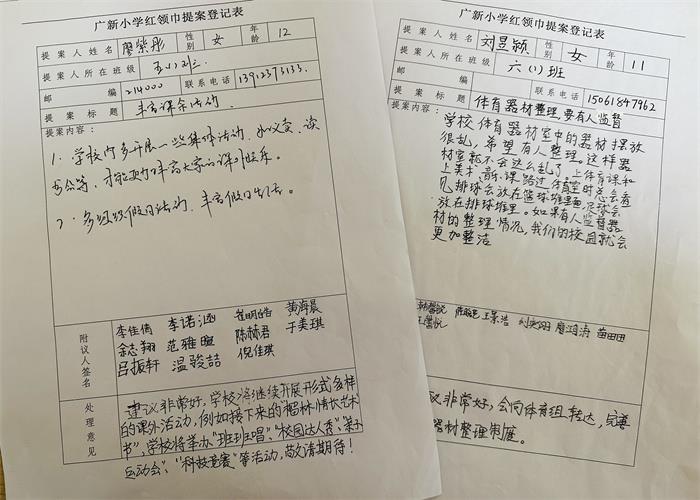 广新小学红领巾提案登记表
提案人姓名 廖紫彤 性别 女 年龄 12
提案人所在班级 五(1)班
邮编 214000 联系电话 13912373133.
提案标题 丰富课余活动
提案内容:
1、学校内多开展一些集体活动,如义卖、读
书会等,
2、多组织假日活动,丰富假日生活。
附议人签名
李佳倩 李诺涵 崔明皓 黄海晨
余志翔 范雅暄 陈赫君 于美琪
吕振轩 温骏喆 倪佳琪
处理意见
建议非常好,学校将继续开展形式多样
的课外活动,例如接下来的“榴林·情长艺术
节”,学校将举办“班班唱”、“校园达人秀”、
运动会、“科技竞赛”等活动,敬请期待!
广新小学红领巾提案登记表
提案人姓名 刘昱颖 性别 女 年龄 11
提案人所在班级 六(1)班
邮编 联系电话 15061847962
提案标题 体育器材整理,要有人监督
提案内容:
学校体育器材室中的器材摆放
很乱,希望有人整理。这样器
材室就不会这么乱了。上体育课和
上美术、音乐课路过体育室时总会看
见排球会放在篮球堆里面,足球会
放在排球堆里。如果有人监督器
材的整理情况,我们的校园就会
更加整洁
王景浩 苗田田
议非常好,会向体育组转达,完善
器材整理制度。